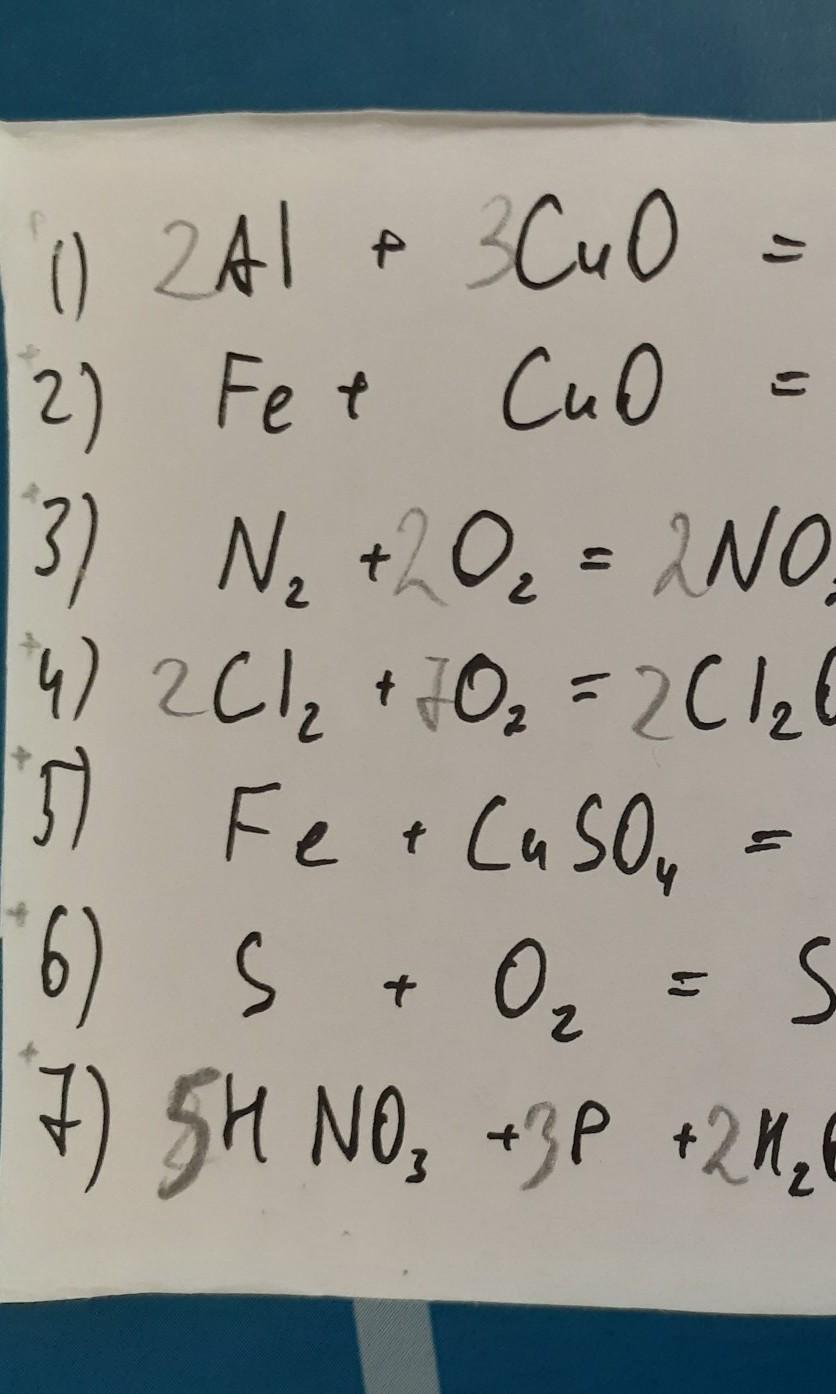 1) 2Al + 3CuO =
2) Fe + CuO =
3) N₂ + 2O₂ = 2NO₂
4) 2Cl₂ + 7O₂ = 2Cl₂O
5) Fe + CuSO₄ =
6) S + O₂ = S
7) 5HNO₃ + 3P + 2H₂O